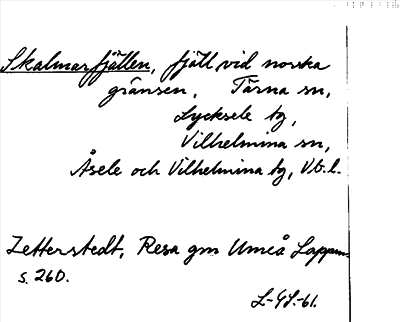 Skalmarfjällen, fjäll vid norska
gränsen, Tärna sn,
Lycksele tg,
Vilhelmina sn,
Åsele och Vilhelmina tg, Vb. l.
Zetterstedt, Resa gm Umeå Lappm.
s. 260.